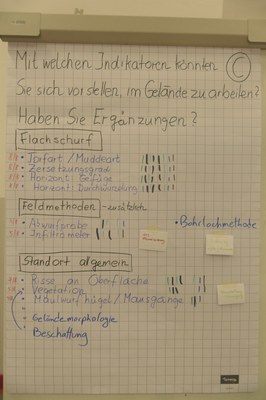 Mit welchen Indikatoren könnten
Sie sich vorstellen, im Gelände zu arbeiten?
Haben Sie Ergänzungen?
Flachschurf
• Torfart / Muddeart
• Zersetzungsgrad
• Horizont: Gefüge
• Horizont: Durchwurzelung
Feldmethoden - zusätzlich
• Abwurfprobe
• Infiltrometer
• Bohrlochmethode
Standort allgemein
• Risse an Oberfläche
• Vegetation
• Maulwurfhügel / Mausgänge
• Geländemorphologie
• Beschattung